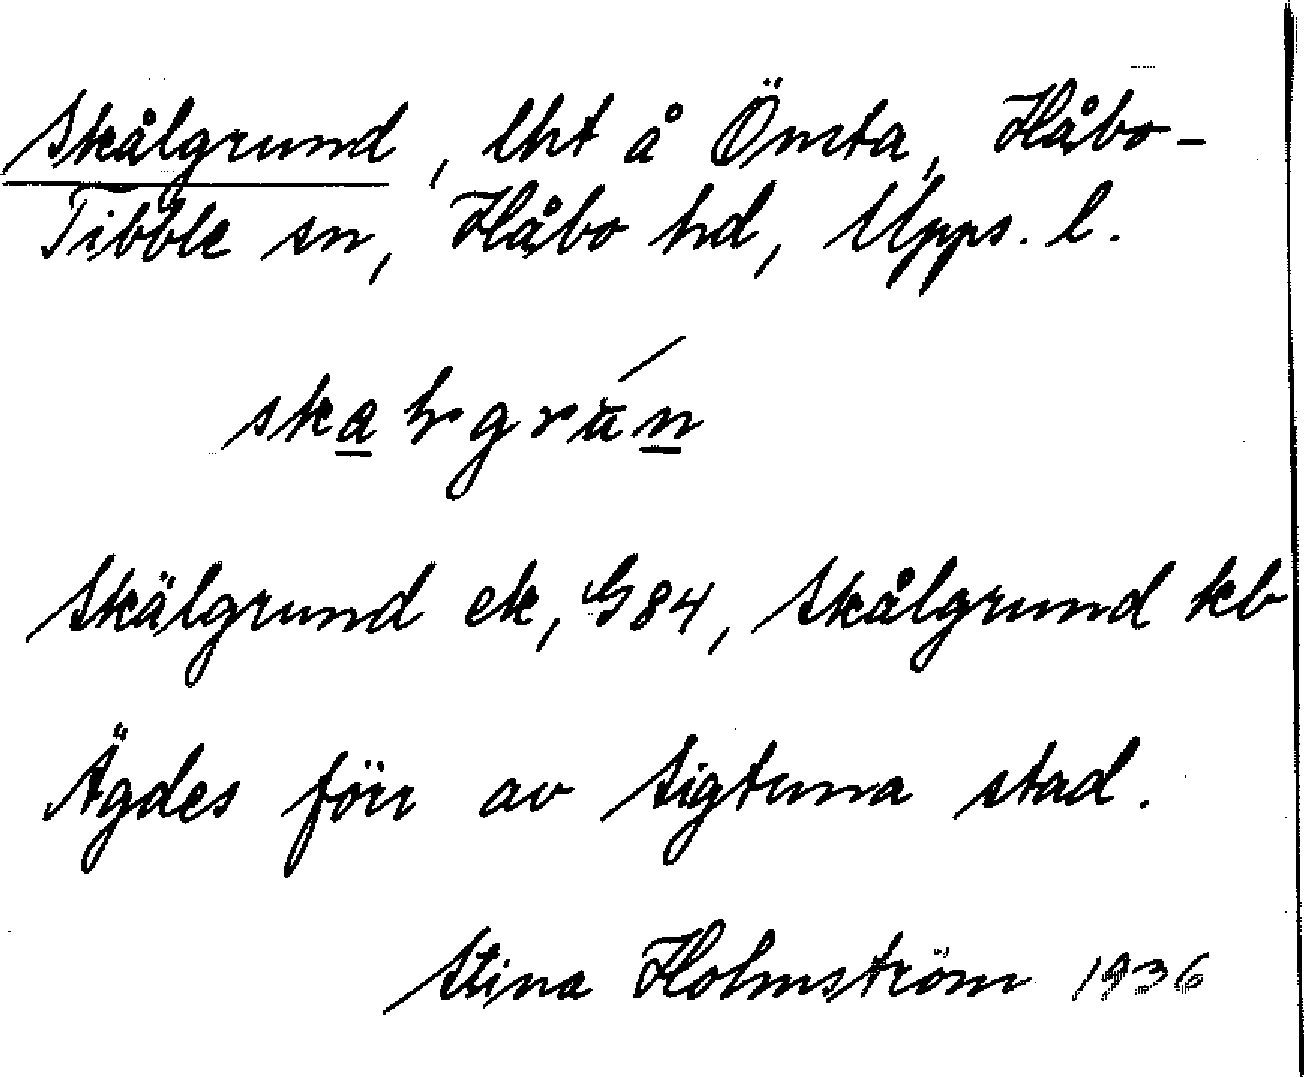 Skålgrund, lht å Ömsta, Håbo-
Tibble sn, Håbo hd, Upps. l.
Skälgrund ek, G84, Skålgrund kb
Ägdes förr av Sigtuna stad.
Stina Holmström 1936